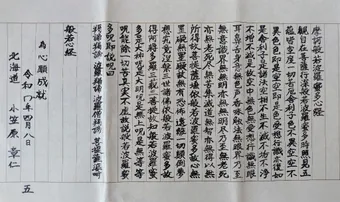 摩訶般若波羅蜜多心経
観自在菩薩行深般若波羅蜜多時照見五
蘊皆空度一切苦厄舎利子色不異空空不
異色色即是空空即是色受想行識亦復如
是舎利子是諸法空相不生不滅不垢不浄
不増不減是故空中無色無受想行識無眼
耳鼻舌身意無色声香味触法無眼界乃至
無意識界無無明亦無無明尽乃至無老死
亦無老死尽無苦集滅道無智亦無得以無
所得故菩提薩埵依般若波羅蜜多故心無
罣礙無罣礙故無有恐怖遠離一切顛倒夢
想究竟涅槃三世諸仏依般若波羅蜜多故
得阿耨多羅三藐三菩提故知般若波羅蜜
多是大神呪是大明呪是無上呪是無等等
呪能除一切苦真実不虚故説般若波羅蜜
多呪即説呪曰
羯諦羯諦波羅羯諦波羅僧羯諦菩提薩婆訶
般若心経
為心願成就
令和〇年四月八日
北海道 小笠原章仁
五